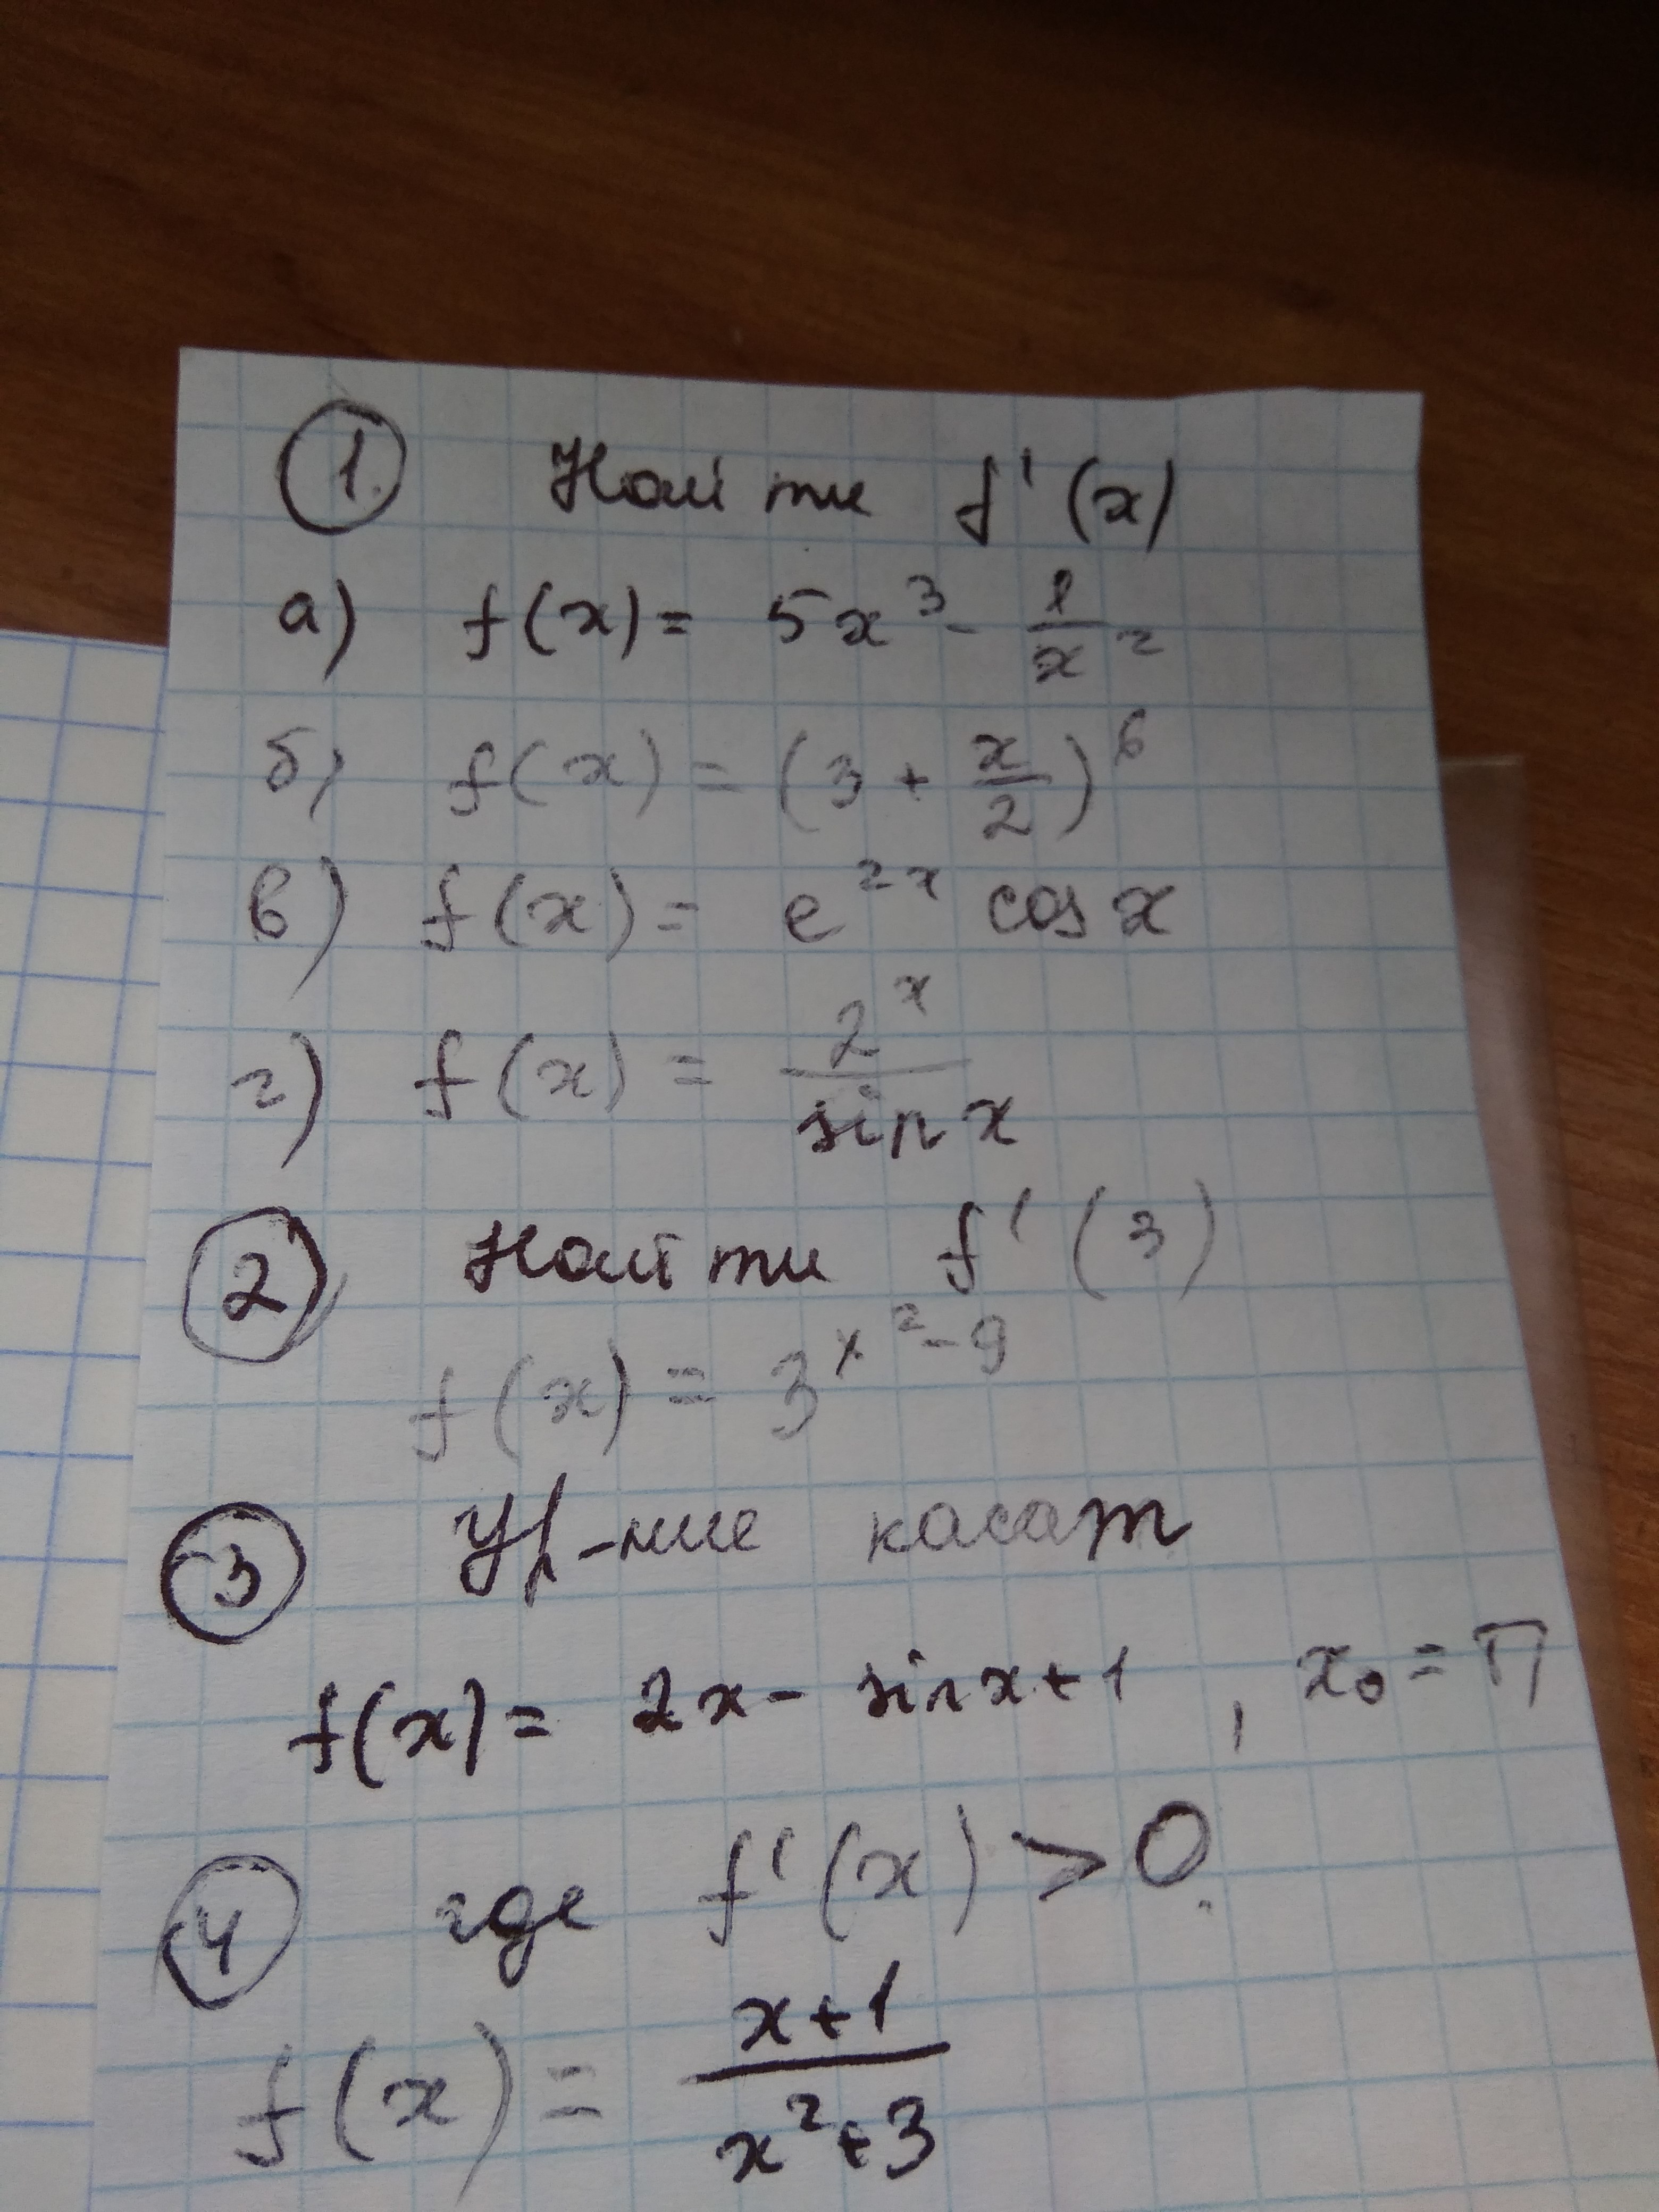 1. Найти f'(x)
а) f(x) = 5x³ - 1/x²
б) f(x) = (3 + x/2)⁶
в) f(x) = e²ˣ cos x
г) f(x) = 2ˣ/sin x
2 Найти f'(3)
f(x) = 3^(x²-9)
3 Ур-ние касат
f(x) = 2x - sin x + 1, x₀ = П
4 где f'(x) > 0.
f(x) = (x+1)/(x²+3)